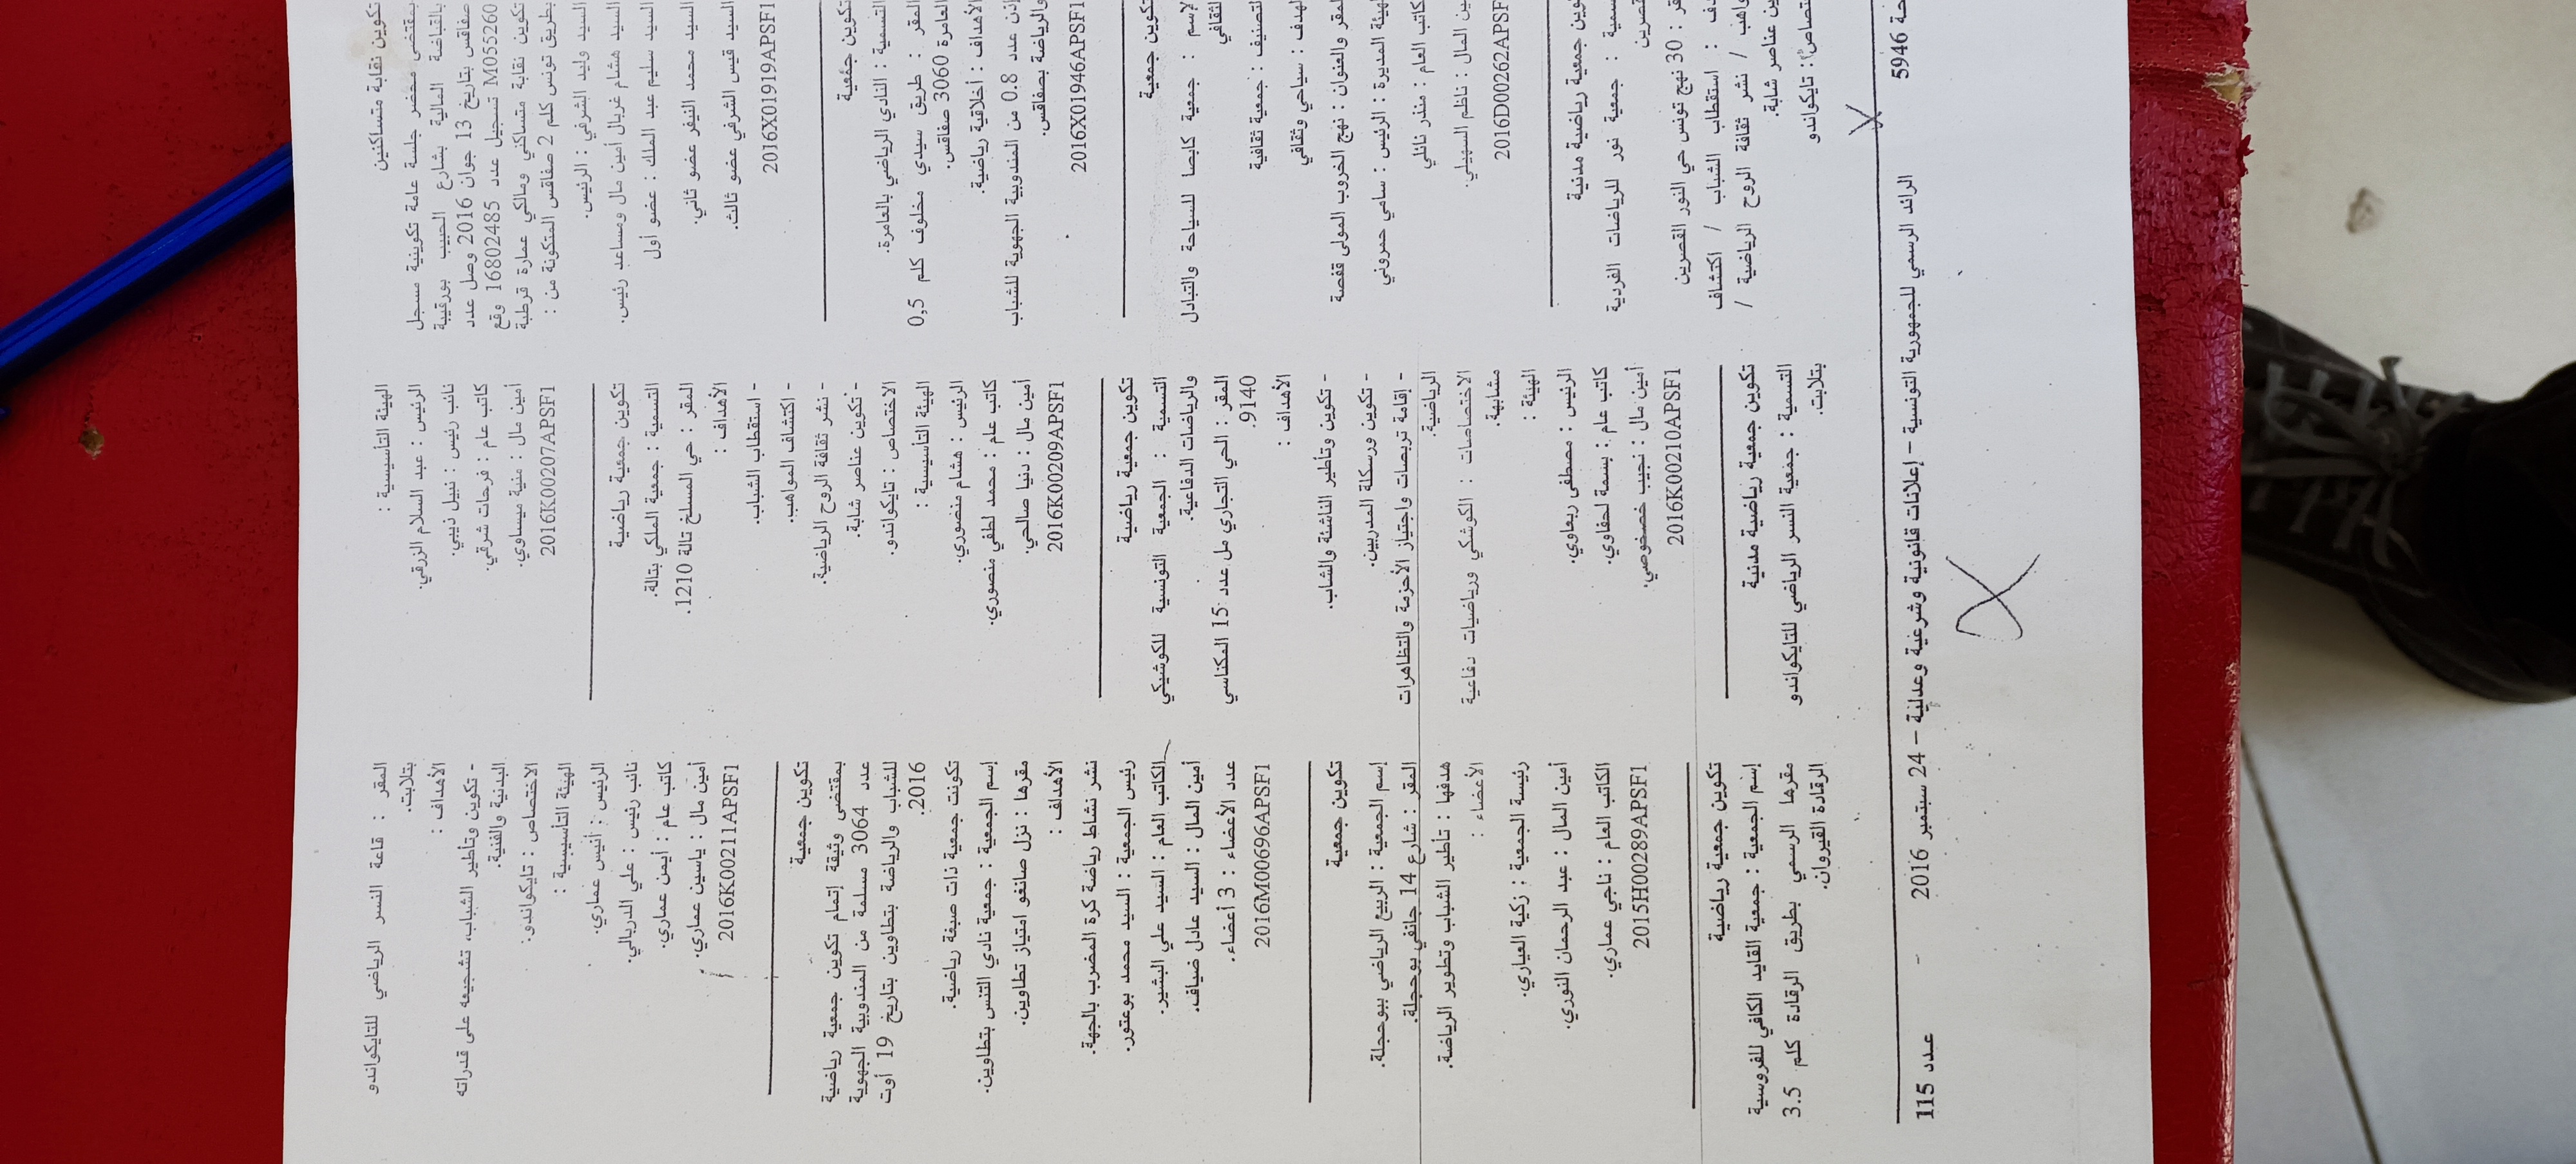 تكوين نقابة متساكنين
بمقتضى محضر جلسة عامة تكوينية مسجل
بالقباضة المالية بشارع الحبيب بورقيبة
صفاقس بتاريخ 13 جوان 2016 وصل عدد
M055260 تسجيل عدد 16802485 وقع
تكوين نقابة متساكني ومالكي عمارة قرطبة
بطريق تونس كلم 2 صفاقس المتكونة من :
السيد وليد الشرفي : الرئيس.
السيد هشام غربال أمين مال ومساعد رئيس.
السيد سليم عبد الملك : عضو أول
السيد محمد النيفر عضو ثاني.
السيد قيس الشرفي عضو ثالث.
2016X01919APSF1
تكوين جمعية
التسمية : النادي الرياضي بالعامرة.
المقر : طريق سيدي مخلوف كلم 0,5
العامرة 3060 صفاقس.
الأهداف : أخلاقية رياضية.
إذن عدد 0.8 من المندوبية الجهوية للشباب
والرياضة بصفاقس.
2016X01946APSF1
تكوين جمعية
لإسم : جمعية كابصا للسياحة والتبادل
لثقافي
لتصنيف : جمعية ثقافية
لهدف : سياحي وثقافي
لمقر والعنوان : نهج الخروب المولى قفصة
لهيئة المديرة : الرئيس : سامي حمروني
كاتب العام : منذر نائلي
ين المال : ناظم السهيلي.
2016D00262APSF
وين جمعية رياضية مدنية
سمية : جمعية نور للرياضات الفردية
قصرين
قر : 30 نهج تونس حي النور القصرين
دف : استقطاب الشباب / اكتشاف
واهب / نشر ثقافة الروح الرياضية /
ين عناصر شابة.
تصاص : تايكواندو
الهيئة التأسيسية :
الرئيس : عبد السلام الزرقي.
نائب رئيس : نبيل ذيبي.
كاتب عام : فرحات شرفي.
أمين مال : منية ميساوي.
2016K00207APSF1
تكوين جمعية رياضية
التسمية : جمعية الملكي بتالة.
المقر : حي المسلخ تالة 1210.
الأهداف :
- استقطاب الشباب.
- اكتشاف المواهب.
- نشر ثقافة الروح الرياضية.
- تكوين عناصر شابة.
الاختصاص : تايكواندو.
الهيئة التأسيسية :
الرئيس : هشام منصوري.
كاتب عام : محمد لطفي منصوري.
أمين مال : دنيا صالحي.
2016K00209APSF1
تكوين جمعية رياضية
التسمية : الجمعية التونسية للكوشيكي
والرياضات الدفاعية.
المقر : الحي التجاري مل عدد 15 المكناسي
9140.
الأهداف :
- تكوين وتأطير الناشئة والشباب.
- تكوين ورسكلة المدربين.
- إقامة تربصات واجتياز الأحزمة والتظاهرات
الرياضية.
الاختصاصات : الكوشكي ورياضيات دفاعية
مشابهة.
الهيئة :
الرئيس : مصطفى ربعاوي.
كاتب عام : بسمة لحفاوي.
أمين مال : نجيب خصخوصي.
2016K00210APSF1
تكوين جمعية رياضية مدنية
التسمية : جمعية النسر الرياضي للتايكواندو
بتلابت.
المقر : قاعة النسر الرياضي للتايكواندو
بتلابت.
الأهداف :
- تكوين وتأطير الشباب، تشجيعه على قدراته
البدنية والفنية.
الاختصاص : تايكواندو.
الهيئة التأسيسية :
الرئيس : أنيس عماري.
نائب رئيس : علي الدربالي.
كاتب عام : أيمن عماري.
أمين مال : ياسين عماري.
2016K00211APSF1
تكوين جمعية
بمقتضى وثيقة إتمام تكوين جمعية رياضية
عدد 3064 مسلمة من المندوبية الجهوية
للشباب والرياضة بتطاوين بتاريخ 19 أوت
2016.
تكونت جمعية ذات صبغة رياضية.
إسم الجمعية : جمعية نادي التنس بتطاوين.
مقرها : نزل صانغو امتياز تطاوين.
الأهداف :
نشر نشاط رياضة كرة المضرب بالجهة.
رئيس الجمعية : السيد محمد بوعتور.
الكاتب العام : السيد علي البشير.
أمين المال : السيد عادل ضياف.
عدد الأعضاء : 3 أعضاء.
2016M00696APSF1
تكوين جمعية
إسم الجمعية : الربيع الرياضي ببوحجلة.
المقر : شارع 14 جانفي بوحجلة.
هدفها : تأطير الشباب وتطوير الرياضة.
الأعضاء :
رئيسة الجمعية : زكية العياري.
أمين المال : عبد الرحمان النوري.
الكاتب العام : ناجي عماري.
2015H00289APSF1
تكوين جمعية رياضية
إسم الجمعية : جمعية القايد الكافي للفروسية
مقرها الرسمي بطريق الرقادة كلم 3.5
الرقادة القيروان.
حة 5946
الرائد الرسمي للجمهورية التونسية – إعلانات قانونية وشرعية وعدلية – 24 سبتمبر 2016
عدد 115